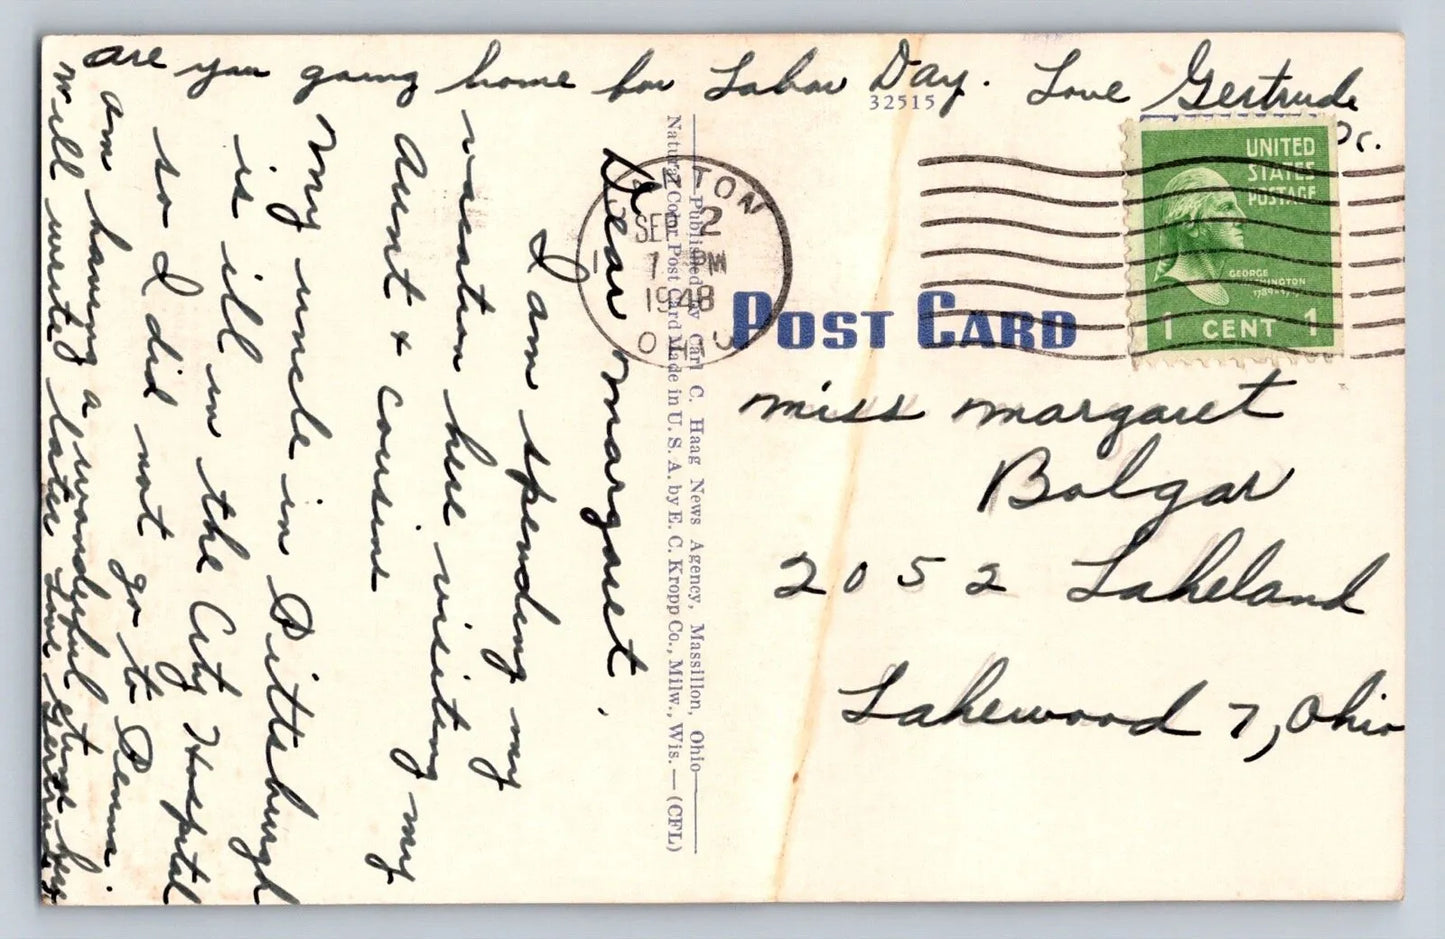 Dear Margaret,
I am spending my
vacation here visiting my
Aunt & cousins
My uncle in Pittsburgh
is ill in the City Hospital
so I did not go to Penna.
am having a wonderful time here
Will write later Love Gertrude
are you going home for Labor Day. Love Gertrude
32515
Published by Carl C. Haag News Agency, Massillon, Ohio
Natural Color Post Card Made in U. S. A. by E. C. Kropp Co., Milw., Wis. — (CFL)
TON
SEP 2
1 PM
1948
UNITED
STATES
POSTAGE
GEORGE
WASHINGTON
1 CENT 1
POST CARD
Miss Margaret
Bolgar
2052 Lakeland
Lakewood 7, Ohio